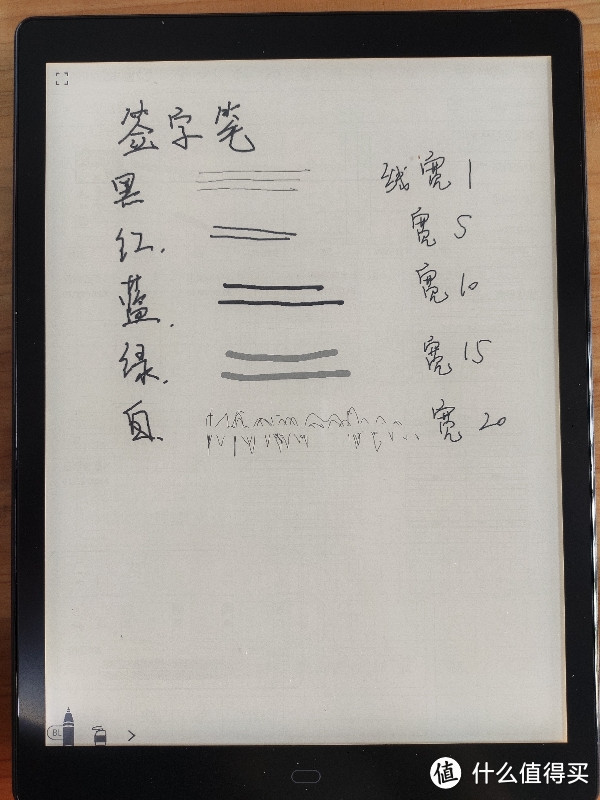 签字笔
黑 线宽 1
红. 宽 5
蓝. 宽 10
绿. 宽 15
白. 宽 20
BL
值 什么值得买